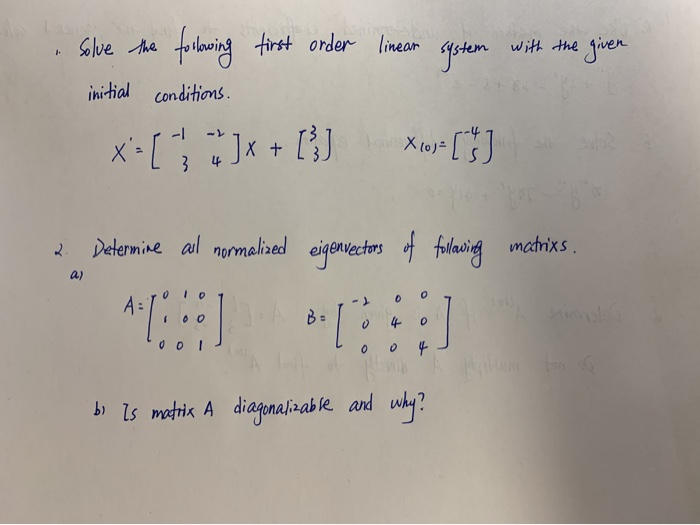 1. Solve the following first order linear system with the given
initial conditions.
X' = [ -1 -2 ; 3 4 ] X + [ 3 ; 3 ] X(0) = [ -4 ; 5 ]
2. Determine all normalized eigenvectors of following matrixs.
a)
A = [ 0 1 0 ; 1 0 0 ; 0 0 1 ] B = [ -2 0 0 ; 0 4 0 ; 0 0 4 ]
b) Is matrix A diagonalizable and why?